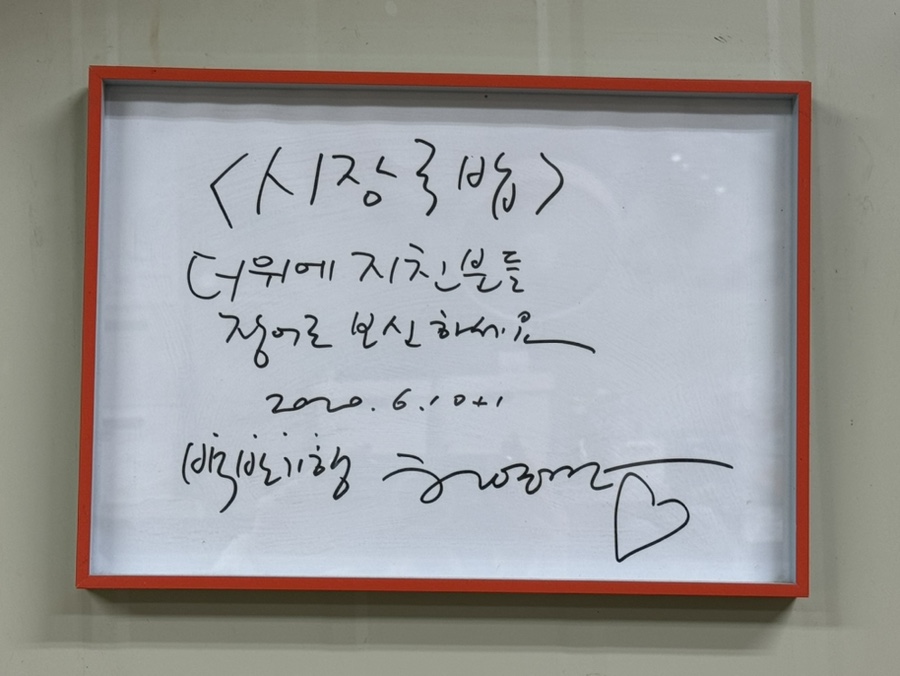 <시장국밥>
더위에 지친분들
장어로 보신하세요
2020. 6. 10
백반기행 허영만